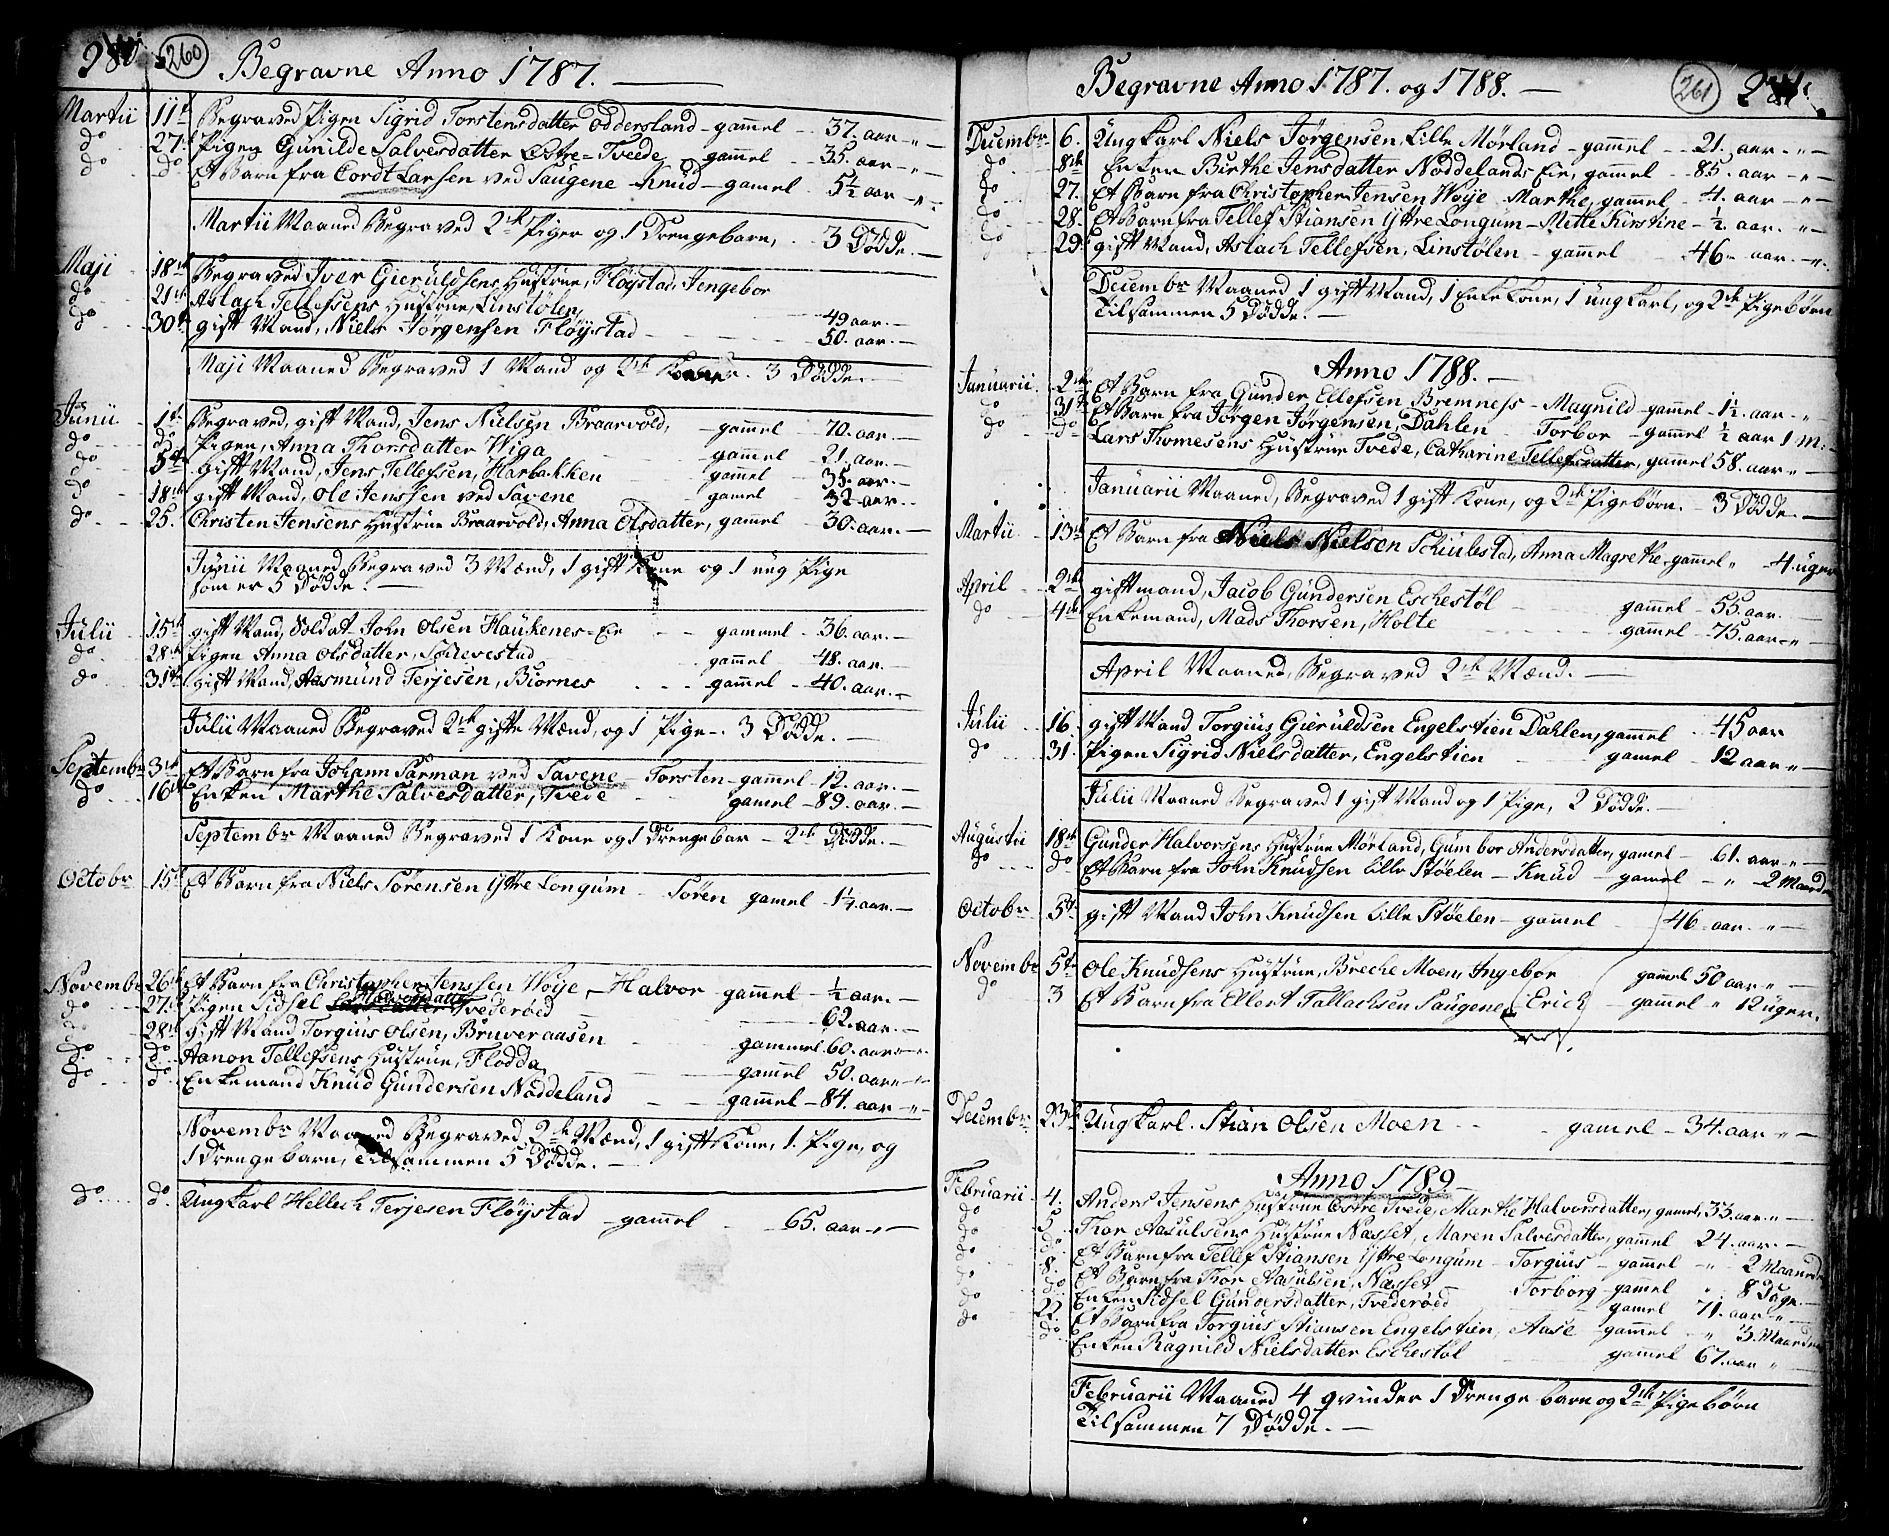 280. 260 Begravne Anno 1787. —
Martii 11te Begraved Pigen Sigrid Torstensdatter Oddersland – gammel 37. aar „ —
do 27. Pigen Gunilde Salvesdatter Østre-Tvede – gammel 35. aar „ —
do do Et Barn fra Cordt Larsen ved Saugene Knud – gamel 5½ aar „
Martii Maaned Begraved 2de Piger og 1 Drengebarn, 3 Dødde. —
Maji 18de Begraved Iver Gieruldsens Hustrue, Fløystad, Jngebor
do 21de Aslach Tellefsens Hustrue, Linstølen, 49 aar. —
do 30te gift Mand, Niels Jørgensen Fløystad 50. aar. —
Maji Maaned Begraved 1 Mand og 2de Koner. 3 Dødde. —
Junii 1te Begraved, gift Mand, Jens Nielsen Braarvold, – gammel 70. aar. —
do do Pigen, Anna Thorsdatter Wiga – gammel 21. aar. —
do 5te gift Mand, Jens Tellefsen, Harbakken gammel 35. aar. —
do 18de gift Mand, Ole Jenssen ved Savene gamel 32 aar. —
do 25. Christen Jensens Hustrue Braarvold, Anna Olsdatter, gammel 30. aar. —
Junii Maaned Begraved 3 Mænd, 1 gift Kone og 1 ung Pige
som er 5 Dødde. —
Julii 15de gift Mand, Soldat John Olsen Haukenes-Eie – gammel – 36. aar. —
do 28de Pigen Anna Olsdatter, Schievestad gammel – 48. aar. —
do 31te gift Mand, Aasmund Terjesen, Biornes gammel – 40. aar. —
Julii Maaned Begraved 2de gifte Mænd, og 1 Pige –. 3 Dødde. —
Septembr 3de Et Barn fra Johann Sarman ved Savene – Torsten – gammel – 12. aar. —
do 16de Enken Marthe Salvesdatter, Tvede gamel – 89. aar. —
Septembr Maaned Begraved 1 Kone og 1 Drengebar – 2de Dødde. —
Octobr 15de Et Barn fra Niels Sørensen Yttre Longum – Søren gamel – 1¼ aar. —
Novembr 26de Et Barn fra Christopher Jenssen Wøye, – Halvor – gammel – ½ aar. —
do 27. Pigen Sidsel Halvorsdatter Tvederøed – 62. aar. —
do 28de gift Mand Torgius Olsen, Bruveraasen gammel 60. aar „ —
do do Aanon Tellefsens Hustrue, Flodda gammel 50. aar „ —
do do Enkemand Knud Gundersen Nøddeland gammel – 84. aar „ —
Novembr Maaned Begraved 2de Mænd, 1 gift Kone, 1. Pige, og
1 Drengebarn, Tilsammen 5 Dødde. —
do do Ungkarl Hellech Terjesen Fløystad – gammel 65. aar „ —
Begravne Anno 1787. og 1788. — 261
Decembr 6. Ungkarl Niels Jørgensen, Lille Mørland – gammel 21. aar „ —
do 8de Enken Birthe Jensdatter Nøddelands Eie, gammel 85. aar „ —
do 27. Et Barn fra Christopher Jensen Wøye – Marthe, gammel 4. aar „ —
do 28. Et Barn fra Tellef Stiansen Yttre Longum – Mette Kirstine – ½ aar. „ —
do 29. gift Mand, Aslach Tellefsen, Linstølen – gammel 46 – aar. „
Decembr Maaned 1 gift Mand, 1 Enke Kone, 1 ungkarl, og 2de Pigebørn
Tilsammen 5 Dødde. —
Anno 1788. —
Januarii 2de Et Barn fra Gunder Ellefsen Bremness – Magnild – gammel – 1½. aar. „
do 31te Et Barn fra Jørgen Jørgensen, Dahlen – Torbor – gammel ½ aar 1 M:
do do Lars Thomesens Hustrue Tvede, Catharine Tellefsdatter, gamel 58. aar „ —
Januarii Maaned, Begraved 1 gift Kone, og 2de Pigebørn. – 3 Dødde. —
Martii 13de Et Barn fra Niels Nielsen Schiulestad, Anna Magrethe – gammel „ 4. uger
April 2de giftmand, Jacob Gundersen Eschestøl gammel – 55. aar.
do 4de Enkemand, Mads Thorsen, Holte gammel – 75. aar „ —
April Maaned, Begraved 2de Mænd. —
Julii 16. gift Mand Torgius Gieruldsen Engelstien Dahlen, gammel 45 aar
do 31. Pigen Sigrid Nielsdatter, Engelstien gamel – 12 aar „ —
Julii Maaned Begraved 1 gift Mand og 1 Pige, 2 Dødde. —
Augustii 18de Gunder Halvorsens Hustrue Mørland, Gumbor Andersdatter, gamel – 61. aar „ —
do do Et Barn fra John Knudsen Lille Støelen – Knud – gamel – „ – 2 Maander
Octobr 5te gift Mand John Knudsen Lille Støelen – gammel 46 – aar. „ —
Novembr 5te Ole Knudsens Hustrue, Breche Moen, Ingebor gammel 50 aar „ —
do 3 Et Barn fra Ellert Tallachsen Saugene, Erich – gammel „ 12 uger.
Decembr 23de Ungkarl. Stian Olsen Moen gamel – 34. aar „ —
Anno 1789. —
Februarii 4. Anders Jensens Hustrue Østre Tvede, Marthe Halvorsdatter, gamel, 33. aar. „ —
do 5. Thor Aasulsens Hustrue Nasset, Maren Salvesdatter, gammel 24. aar. —
do do Et Barn fra Tellef Stiansen Yttre Longum – Torgius – gammel „ 2 Maaneder
do 8. Et Barn fra Thor Aasulsen, Nasset – Torborg – gammel „ 8 Dage. —
do do Enken Sidsel Gundersdatter, Tvederøed – gamel 71. aar „ —
do 22. Et Barn fra Torgius Stiansen Engelstien, Aase – gammel „ 3. Maander
do Enken Ragnild Nielsdatter Eschestøl gammel 67. aar „ —
Februarii Maaned 4 qvinder 1 Drengebarn og 2de Pigebørn
Tilsammen 7 Dødde. —